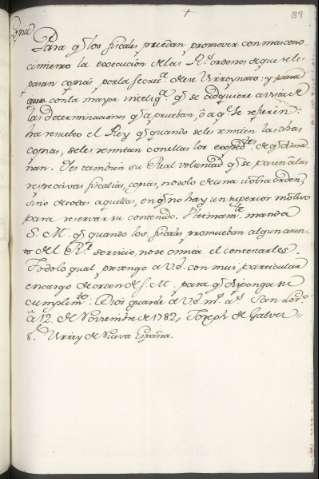 89
Para q.e los fiscales puedan promover con mas cono
cimiento la execucion de las R.s ordenes, de que se le
pasan copias por la Secret.a de ese Virreynato: y para
que con la mayor intelig.a q.e se adquiere a vista de
las determinaciones q.e aprueban, ó a q.e se refieren:
ha resuelto el Rey q.e quando se les remitan las dhas
copias, se les remitan con ellas los exped.tes de q.e dima
nan. Es tambien su Real voluntad q.e se pasen à las
respectivas fiscalias, copias, no solo de una ú otra orden,
sino de todas aquellas, en q.e no hay un superior motivo
para reservar su contenido. Ultimam.te manda
S. M. q.e quando los fiscales promueban algun asun
to del R.l servicio, no se omita el contextarles.
Todo lo qual prevengo a V.E. con mui particular
encargo de orden de S. M. para q.e disponga su
cumplim.to Dios guarde à V.E. m.s a.s San Lor.zo
à 12. de Noviembre de 1782, Joseph de Galvez
S.r Virrey de Nueva España.